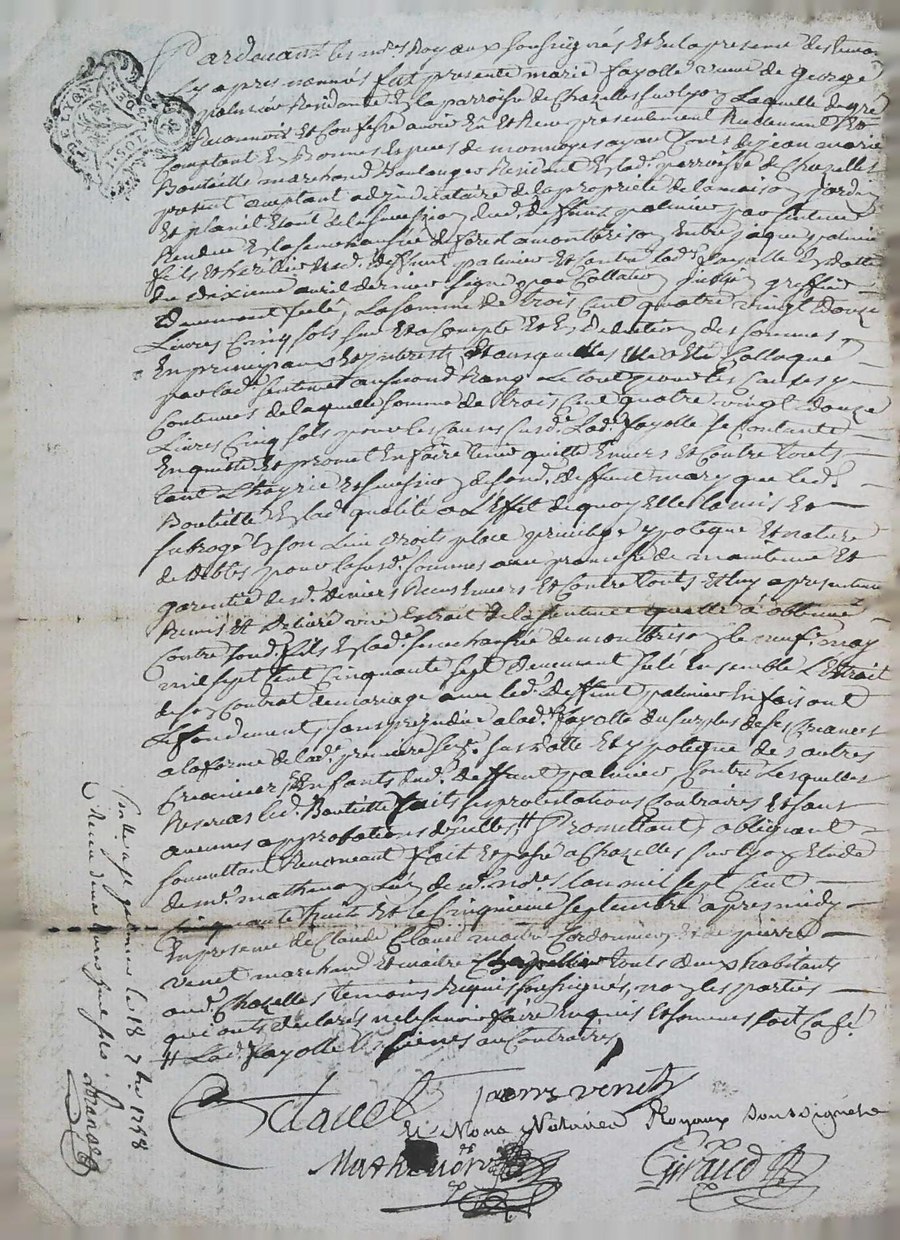 GE. LYON
Pardevant les nres Royaux soussignés Et En la presence des temoins
Cy apres nommés fut presente marie fayolle veuve de george
palmier Residante En la parroisse de Chazelles sur lyon Laquelle de gré
Reconnoit Et Confesse avoir Eu Et Receu presentement Reelement Et
Comptant En Bonnes Especes de monnoyes ayant Cours de jean marie
Bouteille marchand Boulanger Resident En lad. parroisse de Chazelles
present acceptant adjudicataire de la propriété de la maison jardin
Et de la succession dud. deffunt palmier par sentence
Rendue En la senechaussée de forest a montbrison Entre jaques palmier
fils Et heritier dud. deffunt palmier Et Contre lad. fayolle En datte
du dixieme avril dernier signé par Collation greffier
Deument scelé, La somme de trois Cent quatre vingt Douze
Livres Cinq sols sur Et a Compte Et En Deduction des sommes
En principaux Et interests Et auxquelles Elle a Eté Colloqué
par lad. sentence au second Rang Le tout pour les Causes y
Contenues de laquelle somme de trois Cent quatre vingt Douze
Livres Cinq sols pour les Causes susd. Lad. fayolle se Contente
En quitte Et promet En faire tenir quitte Envers Et Contre touts
tant L'hoyrie Et succession de sond. deffunt mary que led.
Bouteille En lad. qualité a L'Effet de quoy Elle l'a mis Et
subrogé En son Lieu droits place privilege ypoteque Et nature
de debtes pour lesd. sommes avec promesse de maintenue Et
garentie desd. deniers Receus Envers Et Contre touts Et luy a presentement
Remis Et Delivré une Extrait de la sentence quelle a obtenue
Contre sond. fils En lad. senechaussée de montbrison le neuf may
mil sept cent Cinquante sept Deument scelé Ensemble L'Extrait
de son Contrat de mariage avec led. deffunt palmier En faisant
Le fondement, sans prejudice a lad. fayolle du surplus de ses Creances
a la forme de lad. premiere sur datte Et ypoteque des autres
Creanciers Et Enfants dud. deffunt palmier Contre Lesquelles
Reserves led. Bouteille fait ses protestations Contraires Et sans
aucunes approbations d'icelles // Promettant obligeant
soumettant Renonceant fait Et passé a Chazelles sur lyon Etude
de me mathevon L'un de nd. nres L'an mil sept Cent
Cinquante huit Et le Cinquieme septembre apres midy
En presence de Claude Clavel maitre Cordonnier Et de pierre
venet marchand Et maitre Chapellier touts deux habitants
aud. Chazelles temoins Requis soussignés, non les parties
qui ont declarés ne le savoir faire Enquis Et sommés
// Lad. fayolle les siennes au Contraires
Clavel
venet
Et Nous Notaires Royaux Soussignés
Mathevon
Giraud
a Chazelles le 18 7bre 1758
Reçu douze sols